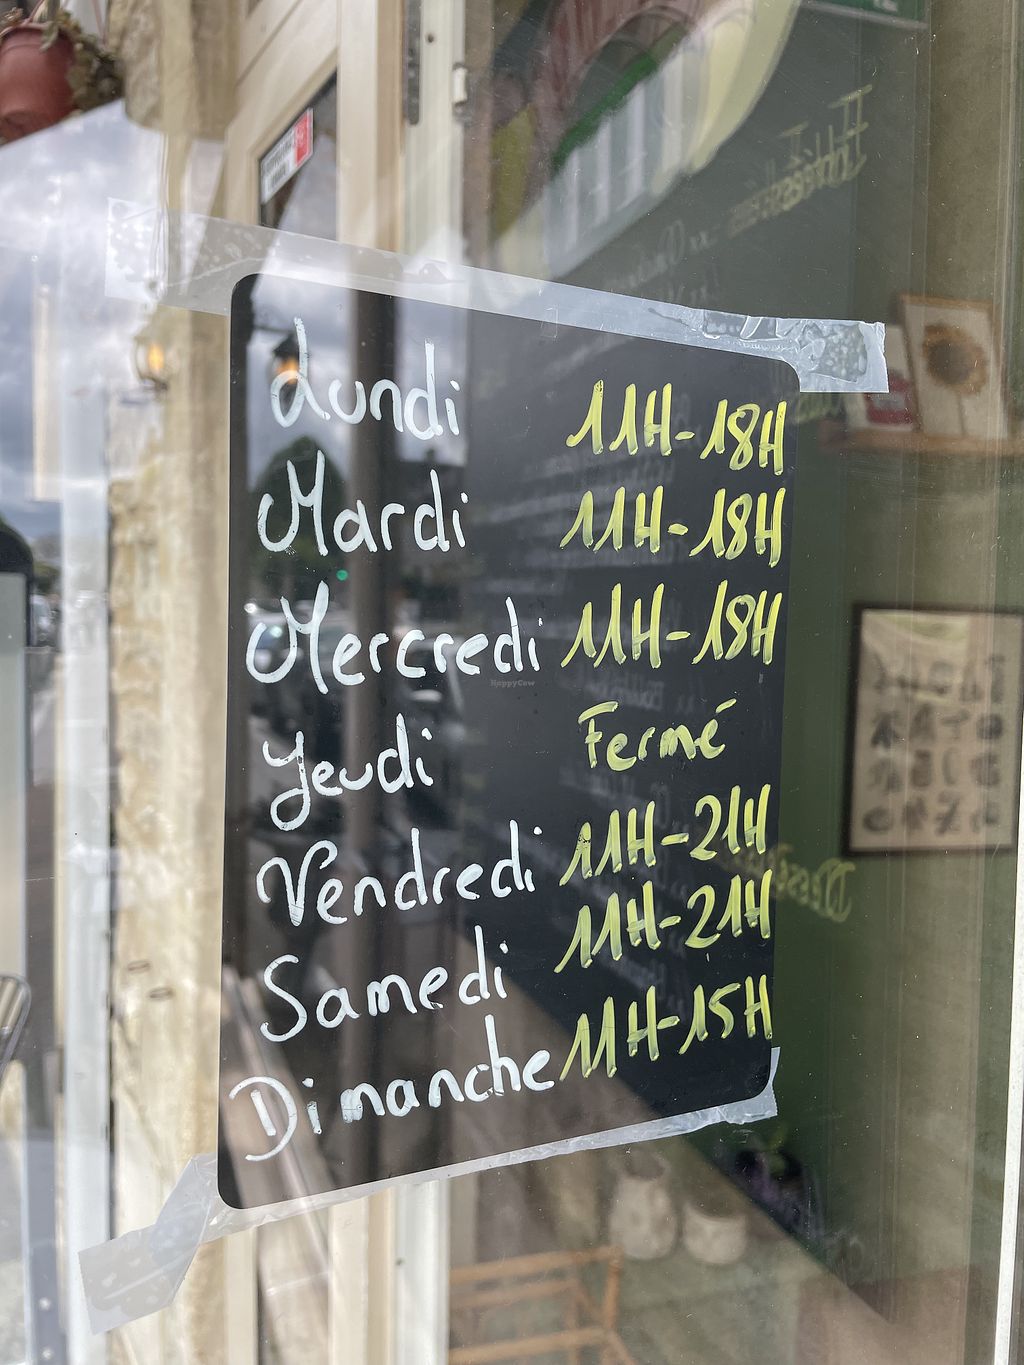 Lundi 11H-18H
Mardi 11H-18H
Mercredi 11H-18H
Jeudi Fermé
Vendredi 11H-21H
Samedi 11H-21H
Dimanche 11H-15H
HappyCow